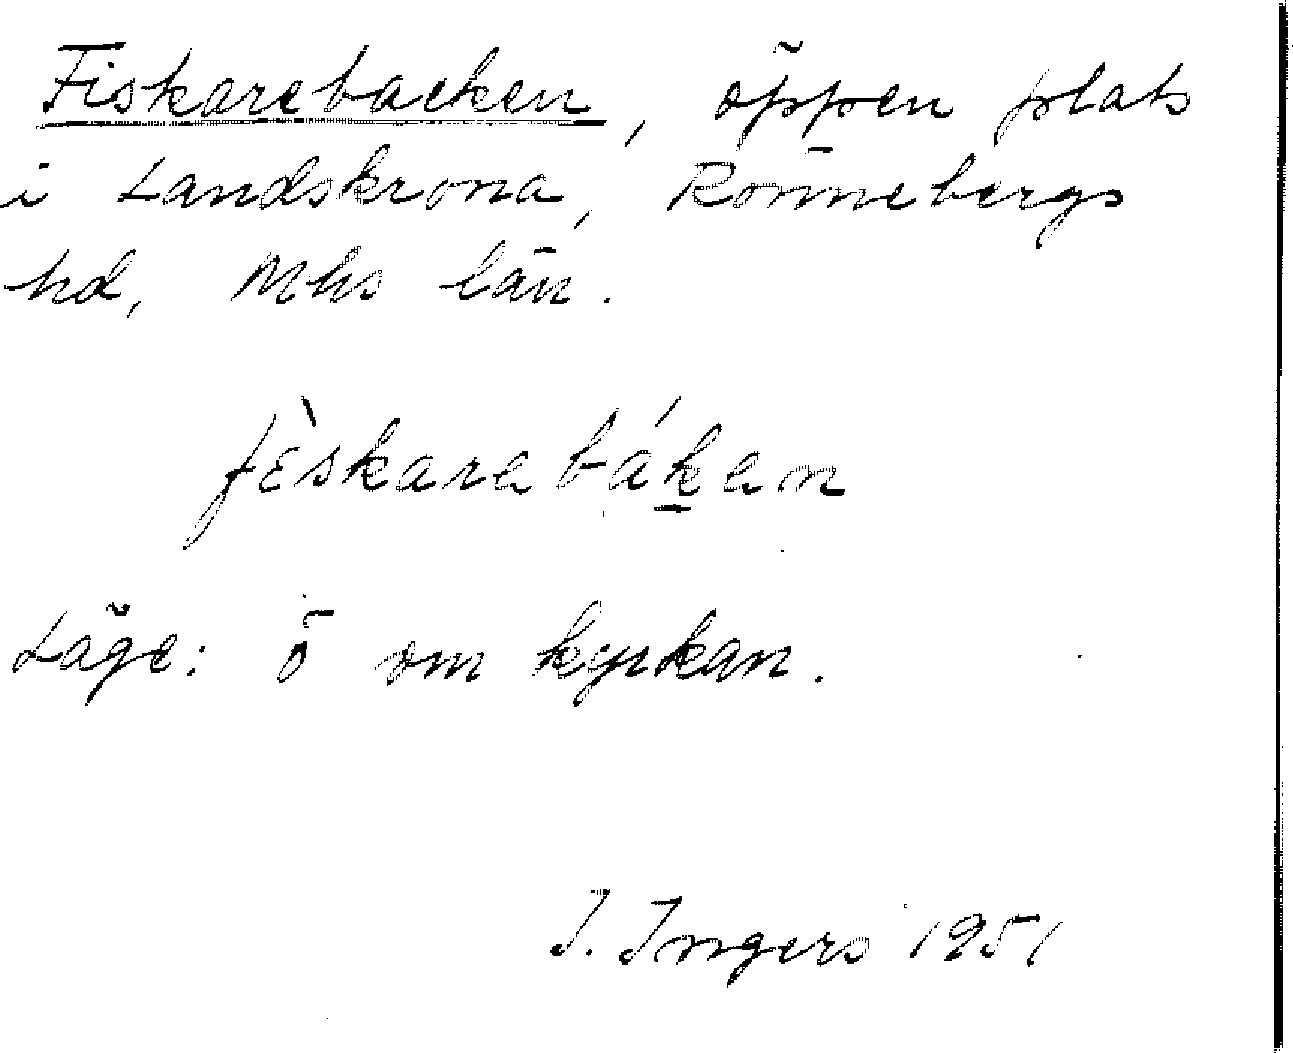 Fiskarebacken, öppen plats
i Landskrona, Rönnebergs
hd, Mhs län.
fɛ̀skarabákan
Läge: ö om kyrkan.
I. Ingers 1951